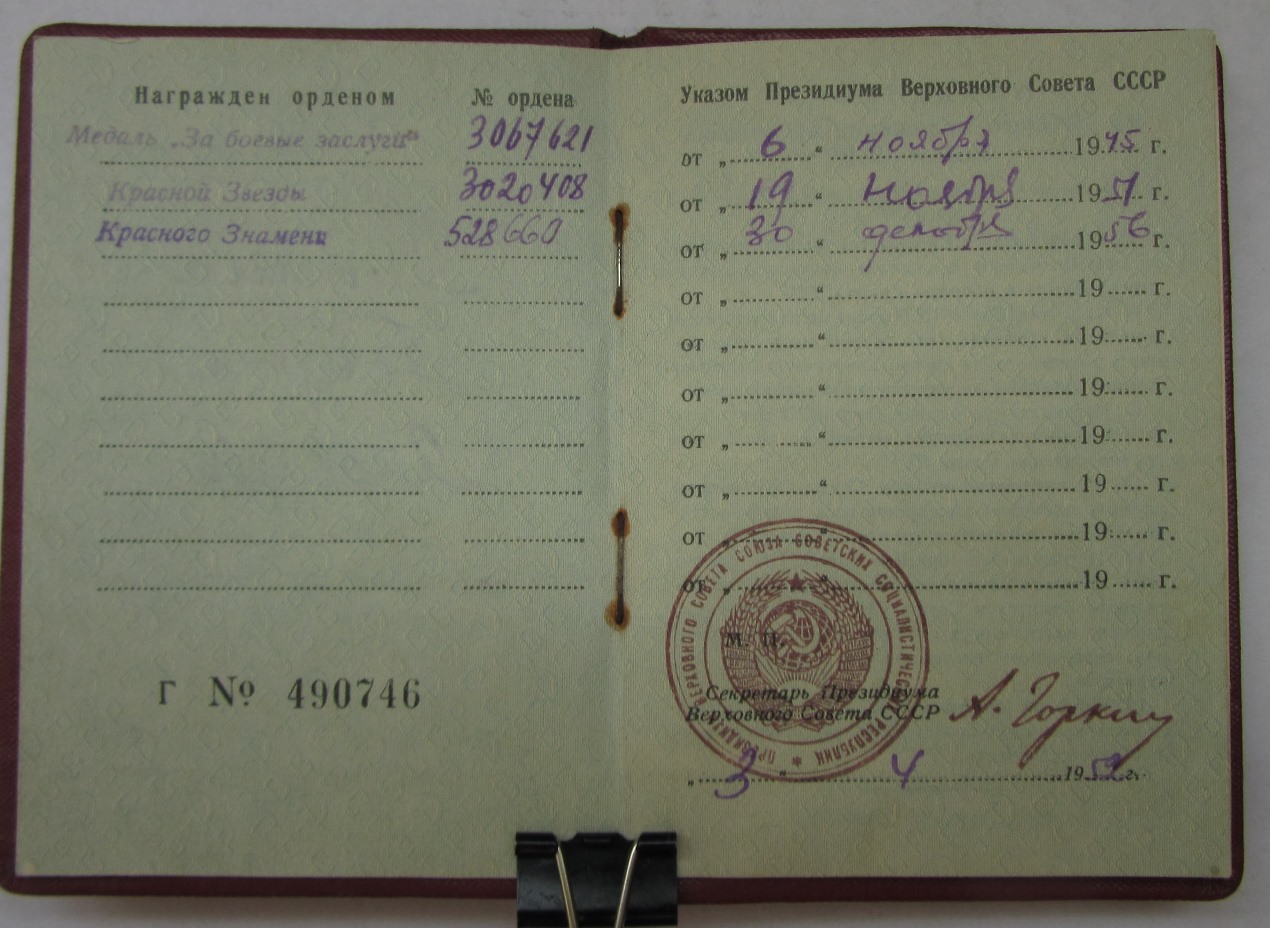 Награжден орденом № ордена
Медаль „За боевые заслуги" 3067621
Красной Звезды 3020408
Красного Знамени 528660
Г № 490746
Указом Президиума Верховного Совета СССР
от „ 6 “ ноября 1945 г.
от „ 19 “ Ноября 1951 г.
от „ 30 “ декабря 1956 г.
от „ “ 19 г.
от „ “ 19 г.
от „ “ 19 г.
от „ “ 19 г.
от „ “ 19 г.
от „ “ 19 г.
от „ “ 19 г.
ПРЕЗИДИУМ ВЕРХОВНОГО СОВЕТА СОЮЗА СОВЕТСКИХ СОЦИАЛИСТИЧЕСКИХ РЕСПУБЛИК
М. П.
Секретарь Президиума
Верховного Совета СССР А. Горкин
„ 3 “ 4 1952 г.